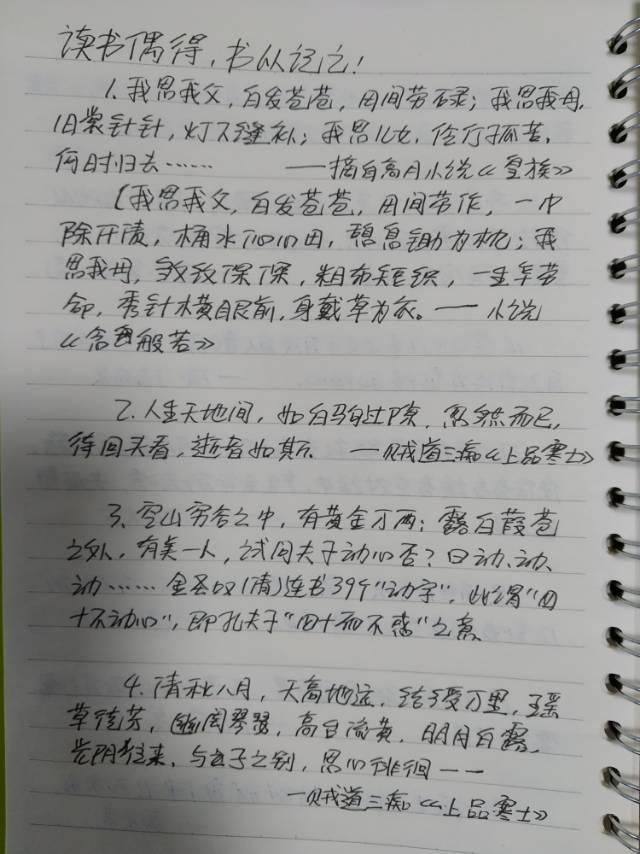 读书偶得，书以记之！
1.我思我父，白发苍苍，田间劳碌；我思我母，
旧裳针针，灯下缝补；我思儿女，伶仃孤苦，
何日归去…… ——摘自高月小说《皇族》
（我思我父，白发苍苍，田间劳作，一巾
除汗渍，桶水沁心田，憩息锄为枕；我
思我母，，粗布短织，一生牟劳
命，秀针木横眼前，身戴草为衣。——小说
《含般若》
2.人生天地间，如白马过隙，忽然而已，
待回头看，逝者如斯 ——贼道三痴《上品寒士》
3、空山穷谷之中，有黄金万两；露白葭苍
之外，有美一人，试问夫子动心否？曰动、动、
动……金圣叹(清)连书39个“动字”，此谓“四
十不动心”，即孔夫子“四十而不惑”之意、
4.清秋八月，天高地远，结绶万里，瑶
草徒芳，幽闺琴瑟，高台流黄，明月白露，
光阴往来，与子之别，思心徘徊——
—贼道三痴《上品寒士》